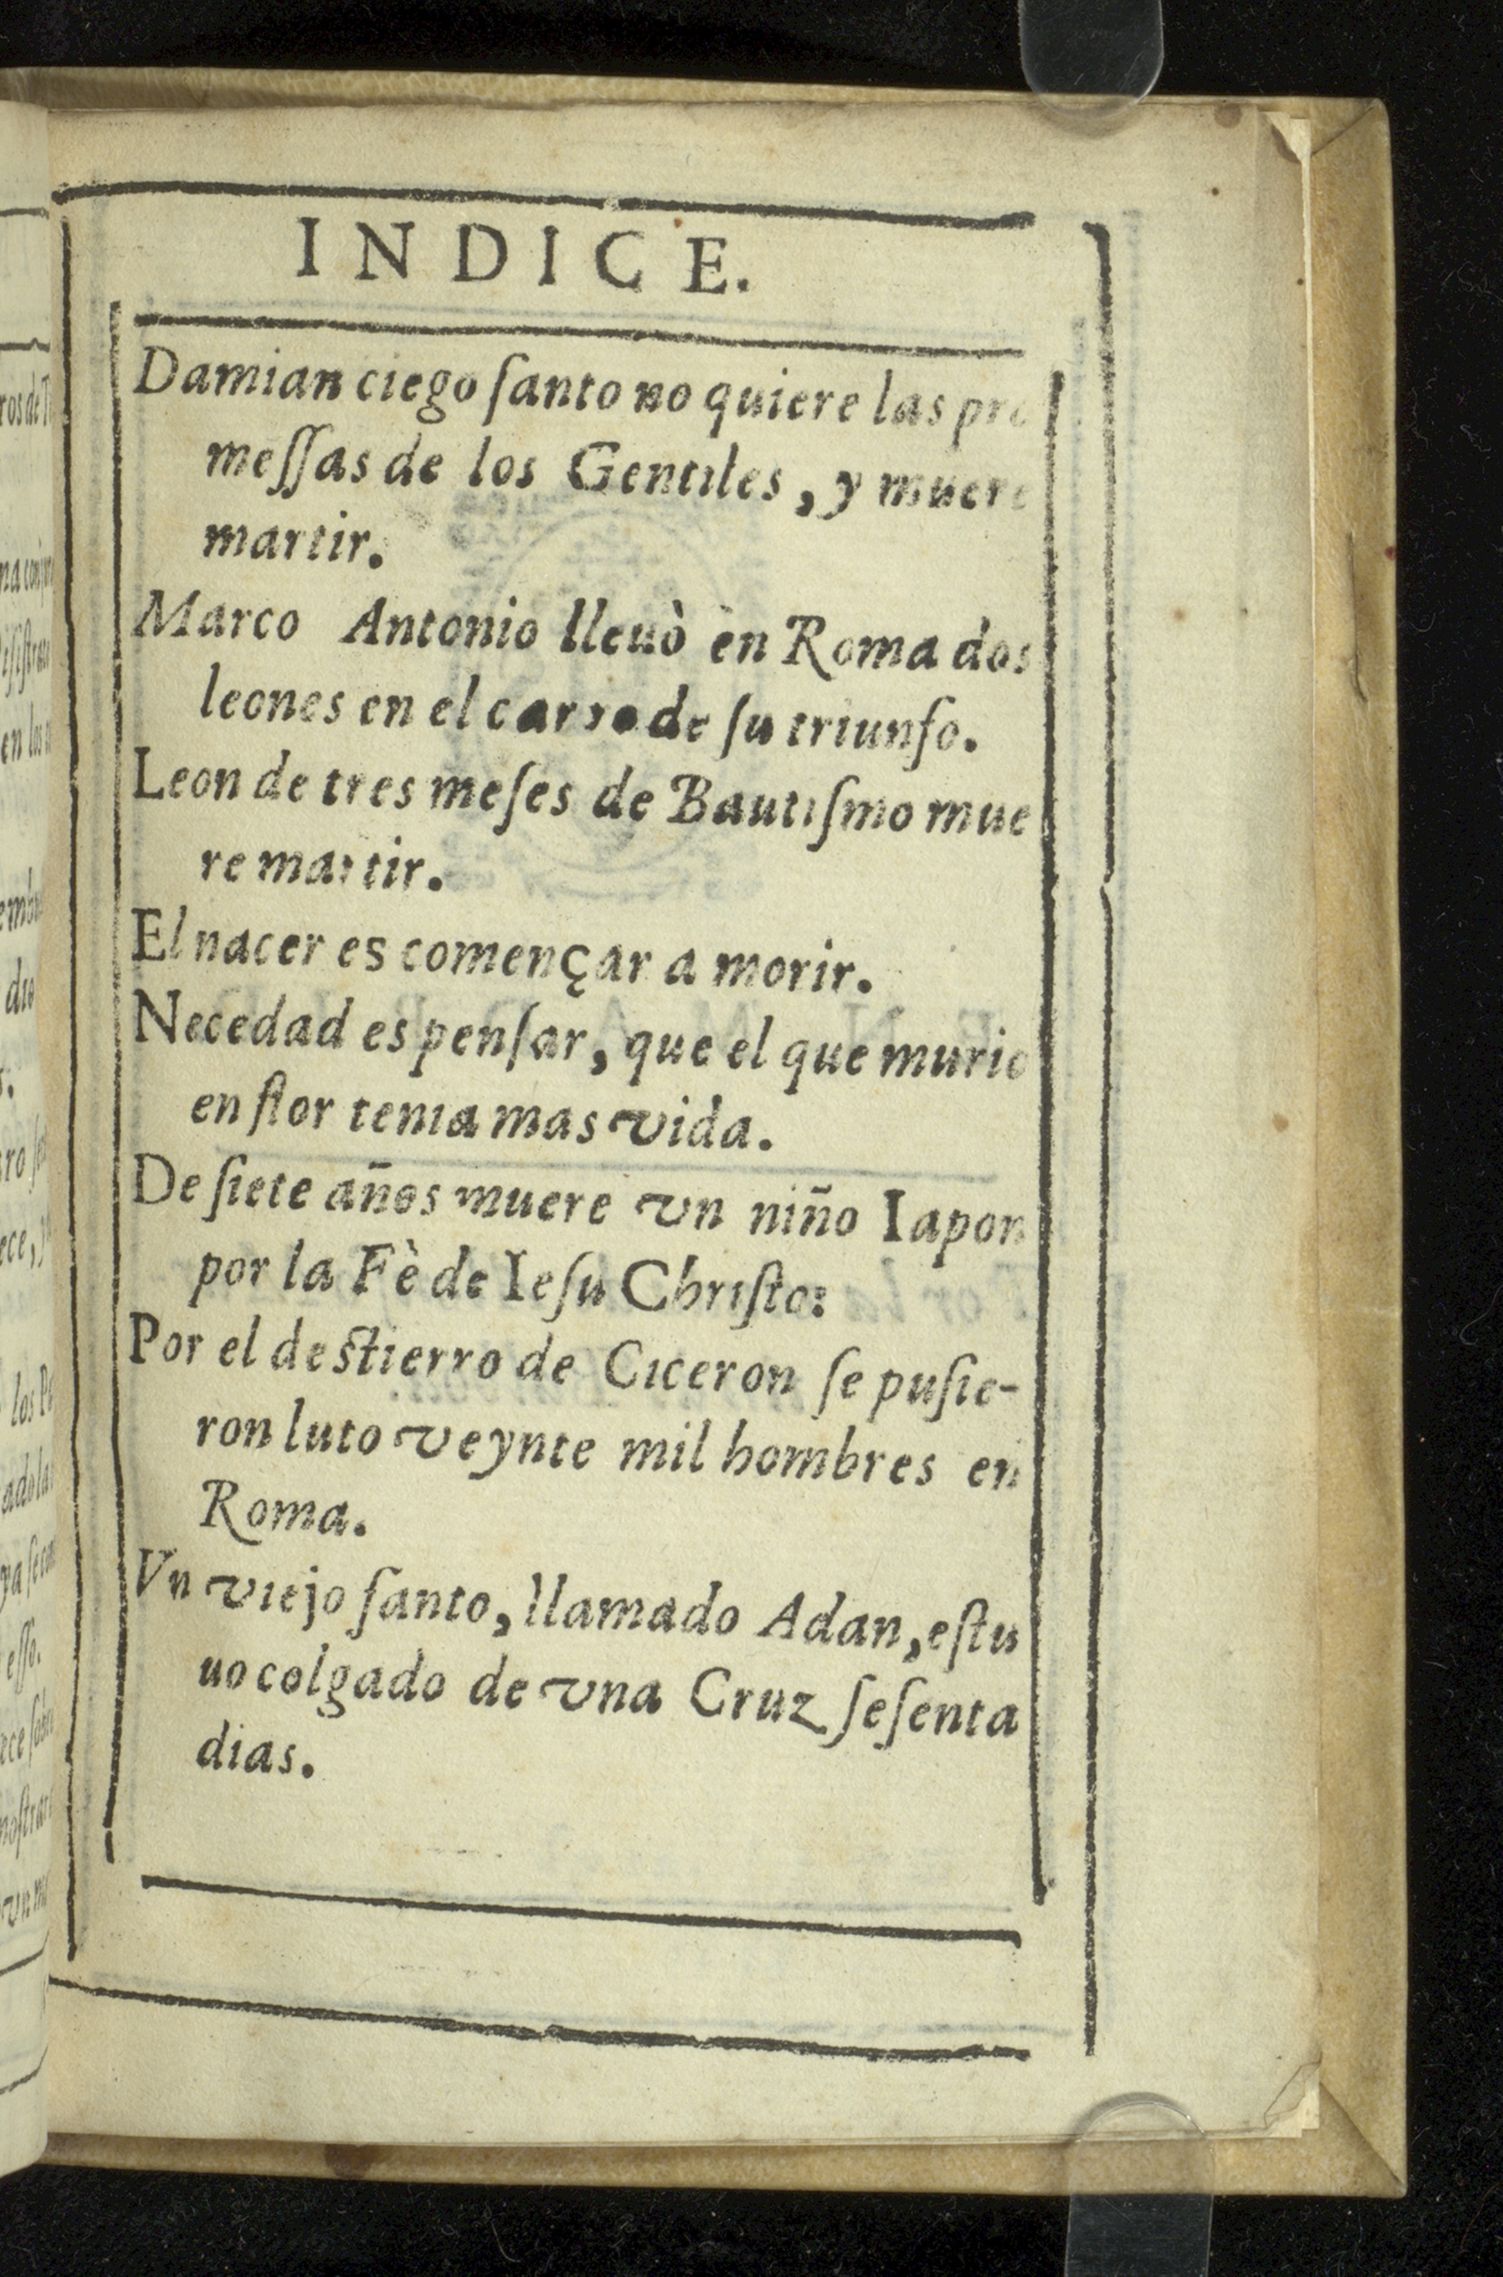 INDICE.
Damian ciego ſanto no quiere las pro
meſſas de los Gentiles, y muere
martir.
Marco Antonio lleuò en Roma dos
leones en el carro de ſu triunfo.
Leon de tres meſes de Bautiſmo mue
re martir.
El nacer es començar a morir.
Necedad es penſar, que el que murio
en flor tenia mas vida.
De ſiete años muere vn niño Iapon
por la Fè de Ieſu Chriſto:
Por el deſtierro de Ciceron ſe puſie-
ron luto veynte mil hombres en
Roma.
Vn viejo ſanto, llamado Adan, eſtu
uo colgado de vna Cruz ſeſenta
dias.